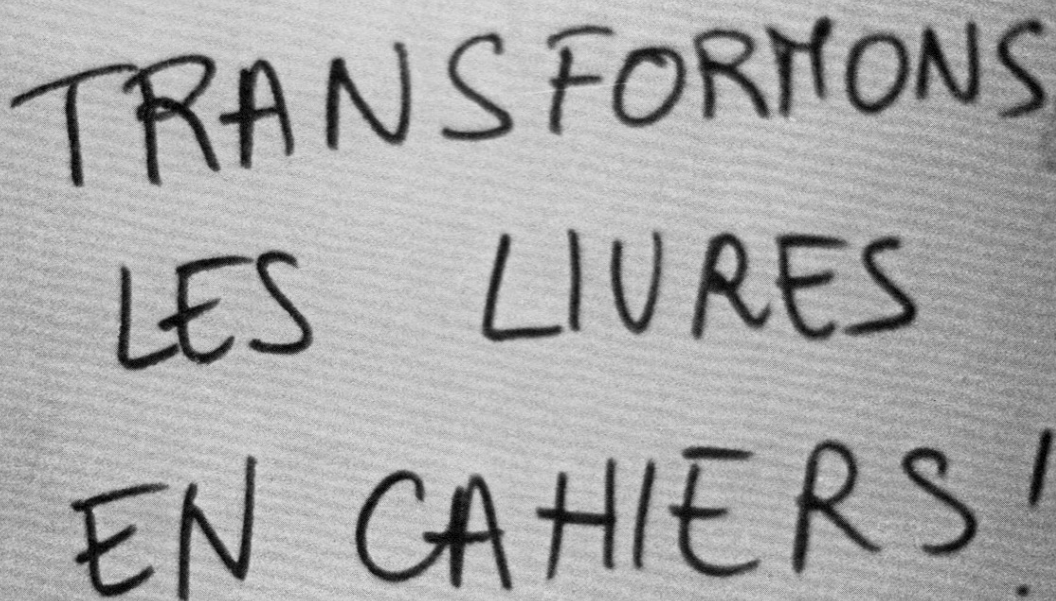 TRANSFORMONS
LES LIVRES
EN CAHIERS!